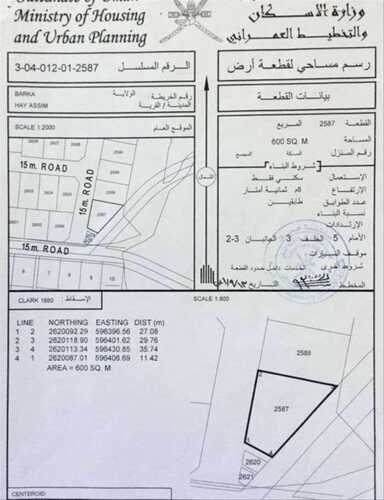 Sultanate of Oman
Ministry of Housing
and Urban Planning
وزارة الإسكان
والتخطيط العمراني
3-04-012-01-2587
الرقم المسلسل
رسم مساحي لقطعة أرض
BARKA
الولاية
رقم الخريطة
HAY ASSIM
المدينة / القرية
بيانات القطعة
SCALE 1:2000
الموقع العام
15m. ROAD
15m. ROAD
15m. ROAD
2587
القطعة 2587 المربع
المساحة 600 SQ. M.
رقم المنزل السكة
شروط البناء
الاستعمال سكني فقط
الإرتفاع ثمانية أمتار
عدد الطوابق طابقين
نسبة البناء
الإرتدادات
الأمام 5 الخلف 3 الجانبان 3-2
موقف السيارات
شروط أخرى الخدمات داخل حدود القطعة
المخطط
التاريخ
الشمال
CLARK 1880
الإسقاط
SCALE 1:600
LINE NORTHING EASTING DIST (m)
1 2 2620092.29 596396.56 27.08
2 3 2620118.90 596401.62 29.76
3 4 2620113.34 596430.85 35.74
4 1 2620087.01 596406.69 11.42
AREA = 600 SQ. M.
2588
2587
2620
2621
CENTEROID